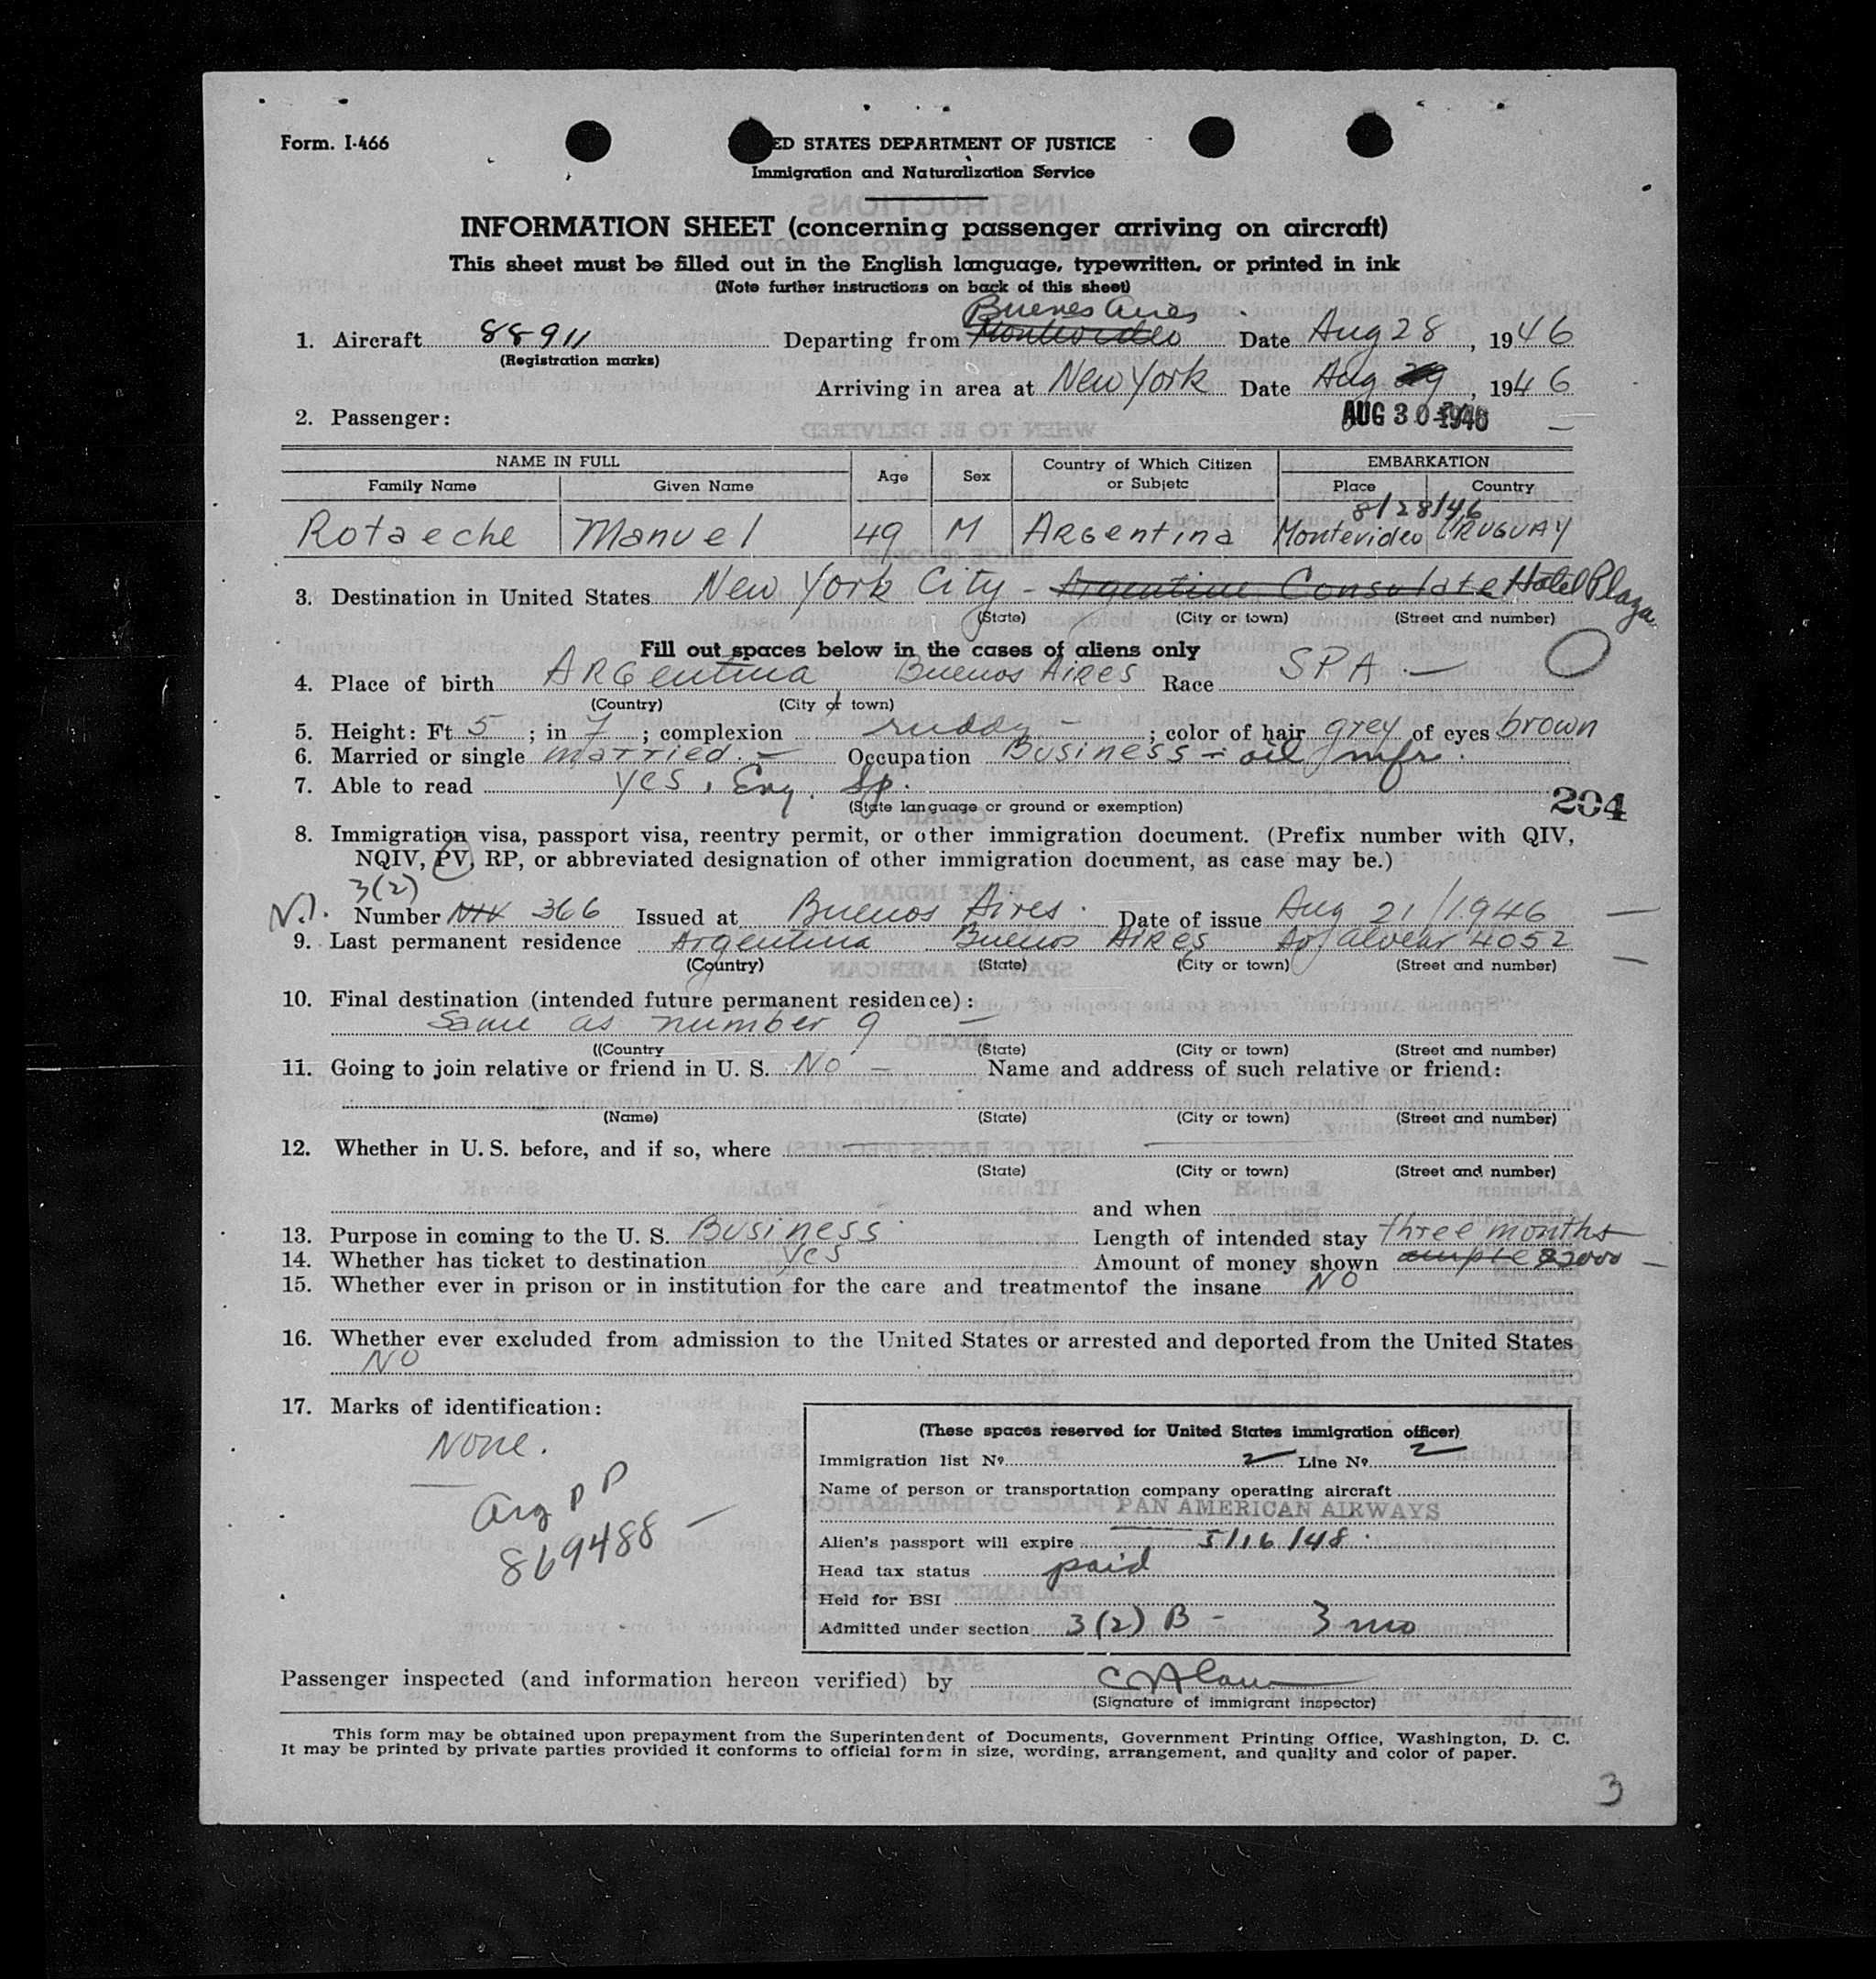 Form. I-466
ED STATES DEPARTMENT OF JUSTICE
Immigration and Naturalization Service
INFORMATION SHEET (concerning passenger arriving on aircraft)
This sheet must be filled out in the English language, typewritten, or printed in ink
(Note further instructions on back of this sheet)
Buenos Aires
1. Aircraft 88911 Departing from Montevideo Date Aug 28, 1946
(Registration marks)
Arriving in area at New York Date Aug 29, 1946
2. Passenger: AUG 30 1946
NAME IN FULL Age Sex Country of Which Citizen or Subjetc EMBARKATION
Family Name Given Name Place Country
8/28/46
Rotaeche Manuel 49 M Argentina Montevideo URUGUAY
3. Destination in United States New York City - Argentine Consulate Hotel Plaza
(State) (City or town) (Street and number)
Fill out spaces below in the cases of aliens only
4. Place of birth ARGentina Buenos Aires Race SPA -
(Country) (City of town)
5. Height: Ft 5 ; in 7 ; complexion ruddy - ; color of hair grey of eyes brown
6. Married or single married. - Occupation Business - oil mfr.
7. Able to read yes, Eng. Sp.
(State language or ground or exemption)
204
8. Immigration visa, passport visa, reentry permit, or other immigration document. (Prefix number with QIV,
NQIV, PV, RP, or abbreviated designation of other immigration document, as case may be.)
3(2)
Number 366 Issued at Buenos Aires. Date of issue Aug 21/1946
9. Last permanent residence Argentina Buenos Aires Av Alvear 4052
(Country) (State) (City or town) (Street and number)
10. Final destination (intended future permanent residence):
Same as number 9 -
((Country (State) (City or town) (Street and number)
11. Going to join relative or friend in U. S. No - Name and address of such relative or friend:
(Name) (State) (City or town) (Street and number)
12. Whether in U. S. before, and if so, where
(State) (City or town) (Street and number)
and when
13. Purpose in coming to the U. S. Business. Length of intended stay three months
14. Whether has ticket to destination yes Amount of money shown ample $2000 -
15. Whether ever in prison or in institution for the care and treatmentof the insane NO
16. Whether ever excluded from admission to the United States or arrested and deported from the United States
NO
17. Marks of identification:
None.
Arg PP
869488 -
(These spaces reserved for United States immigration officer)
Immigration list No 2 Line No 2
Name of person or transportation company operating aircraft
PAN AMERICAN AIRWAYS
Alien's passport will expire 5/16/48.
Head tax status paid
Held for BSI
Admitted under section 3(2) B - 3 mo
Passenger inspected (and information hereon verified) by
(Signature of immigrant inspector)
This form may be obtained upon prepayment from the Superintendent of Documents, Government Printing Office, Washington, D. C.
It may be printed by private parties provided it conforms to official form in size, wording, arrangement, and quality and color of paper.
3